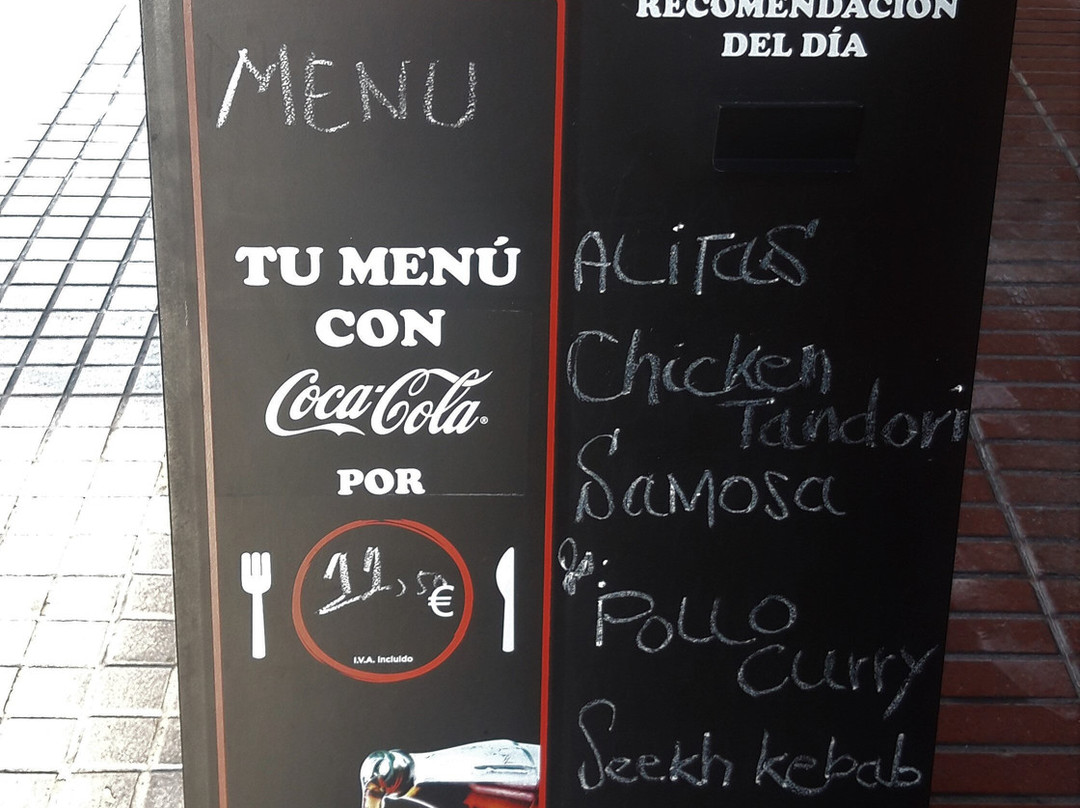 MENU
TU MENÚ
CON
Coca-Cola®
POR
11,50
€
I.V.A. incluido
RECOMENDACIÓN
DEL DÍA
ALiTas
Chicken
Tandori
Samosa
Pollo
Curry
Seekh kebab